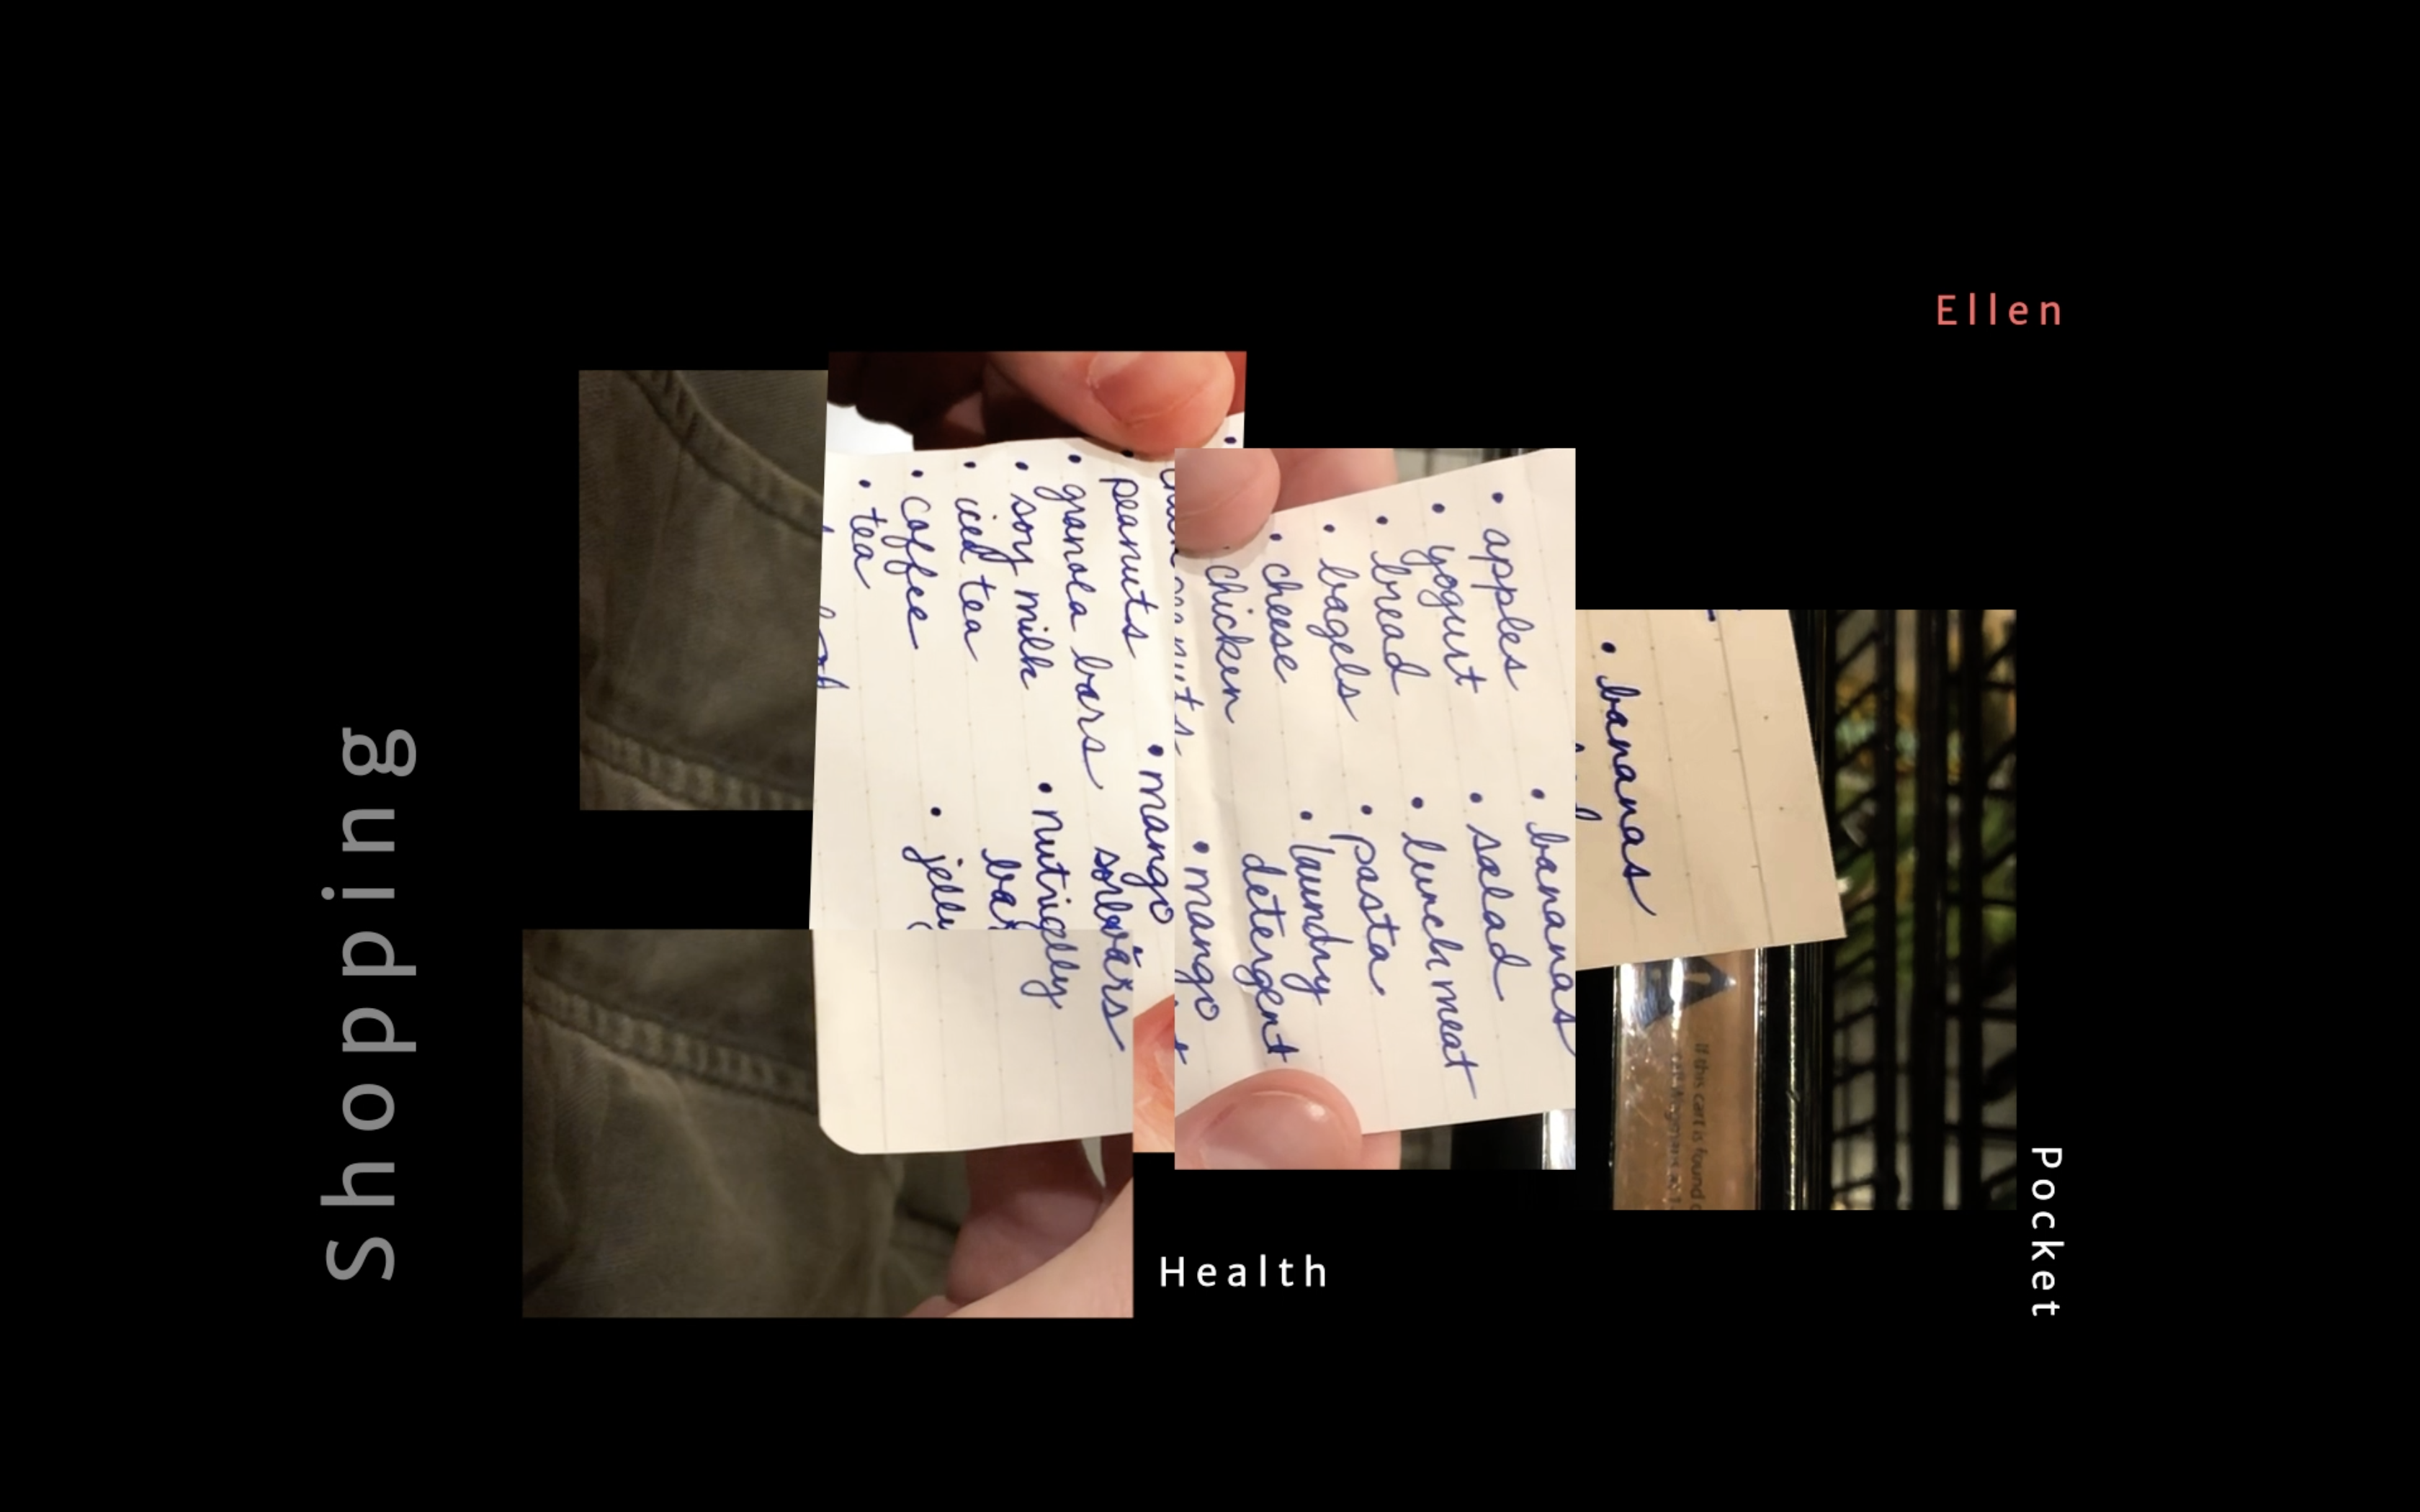 Shopping
Ellen
Pocket
Health
• bananas
• apples
• yogurt
• bread
• bagels
• cheese
chicken
• bananas
• salad
• lunch meat
• pasta
• laundry
detergent
• mango
peanuts
• granola bars
• soy milk
• iced tea
• coffee
• tea
• mango
• jelly
If this cart is found